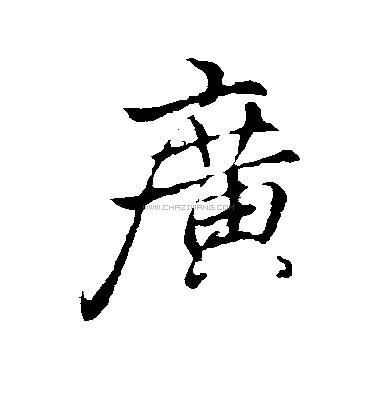 廣
WWW.CHAZIWANG.COM